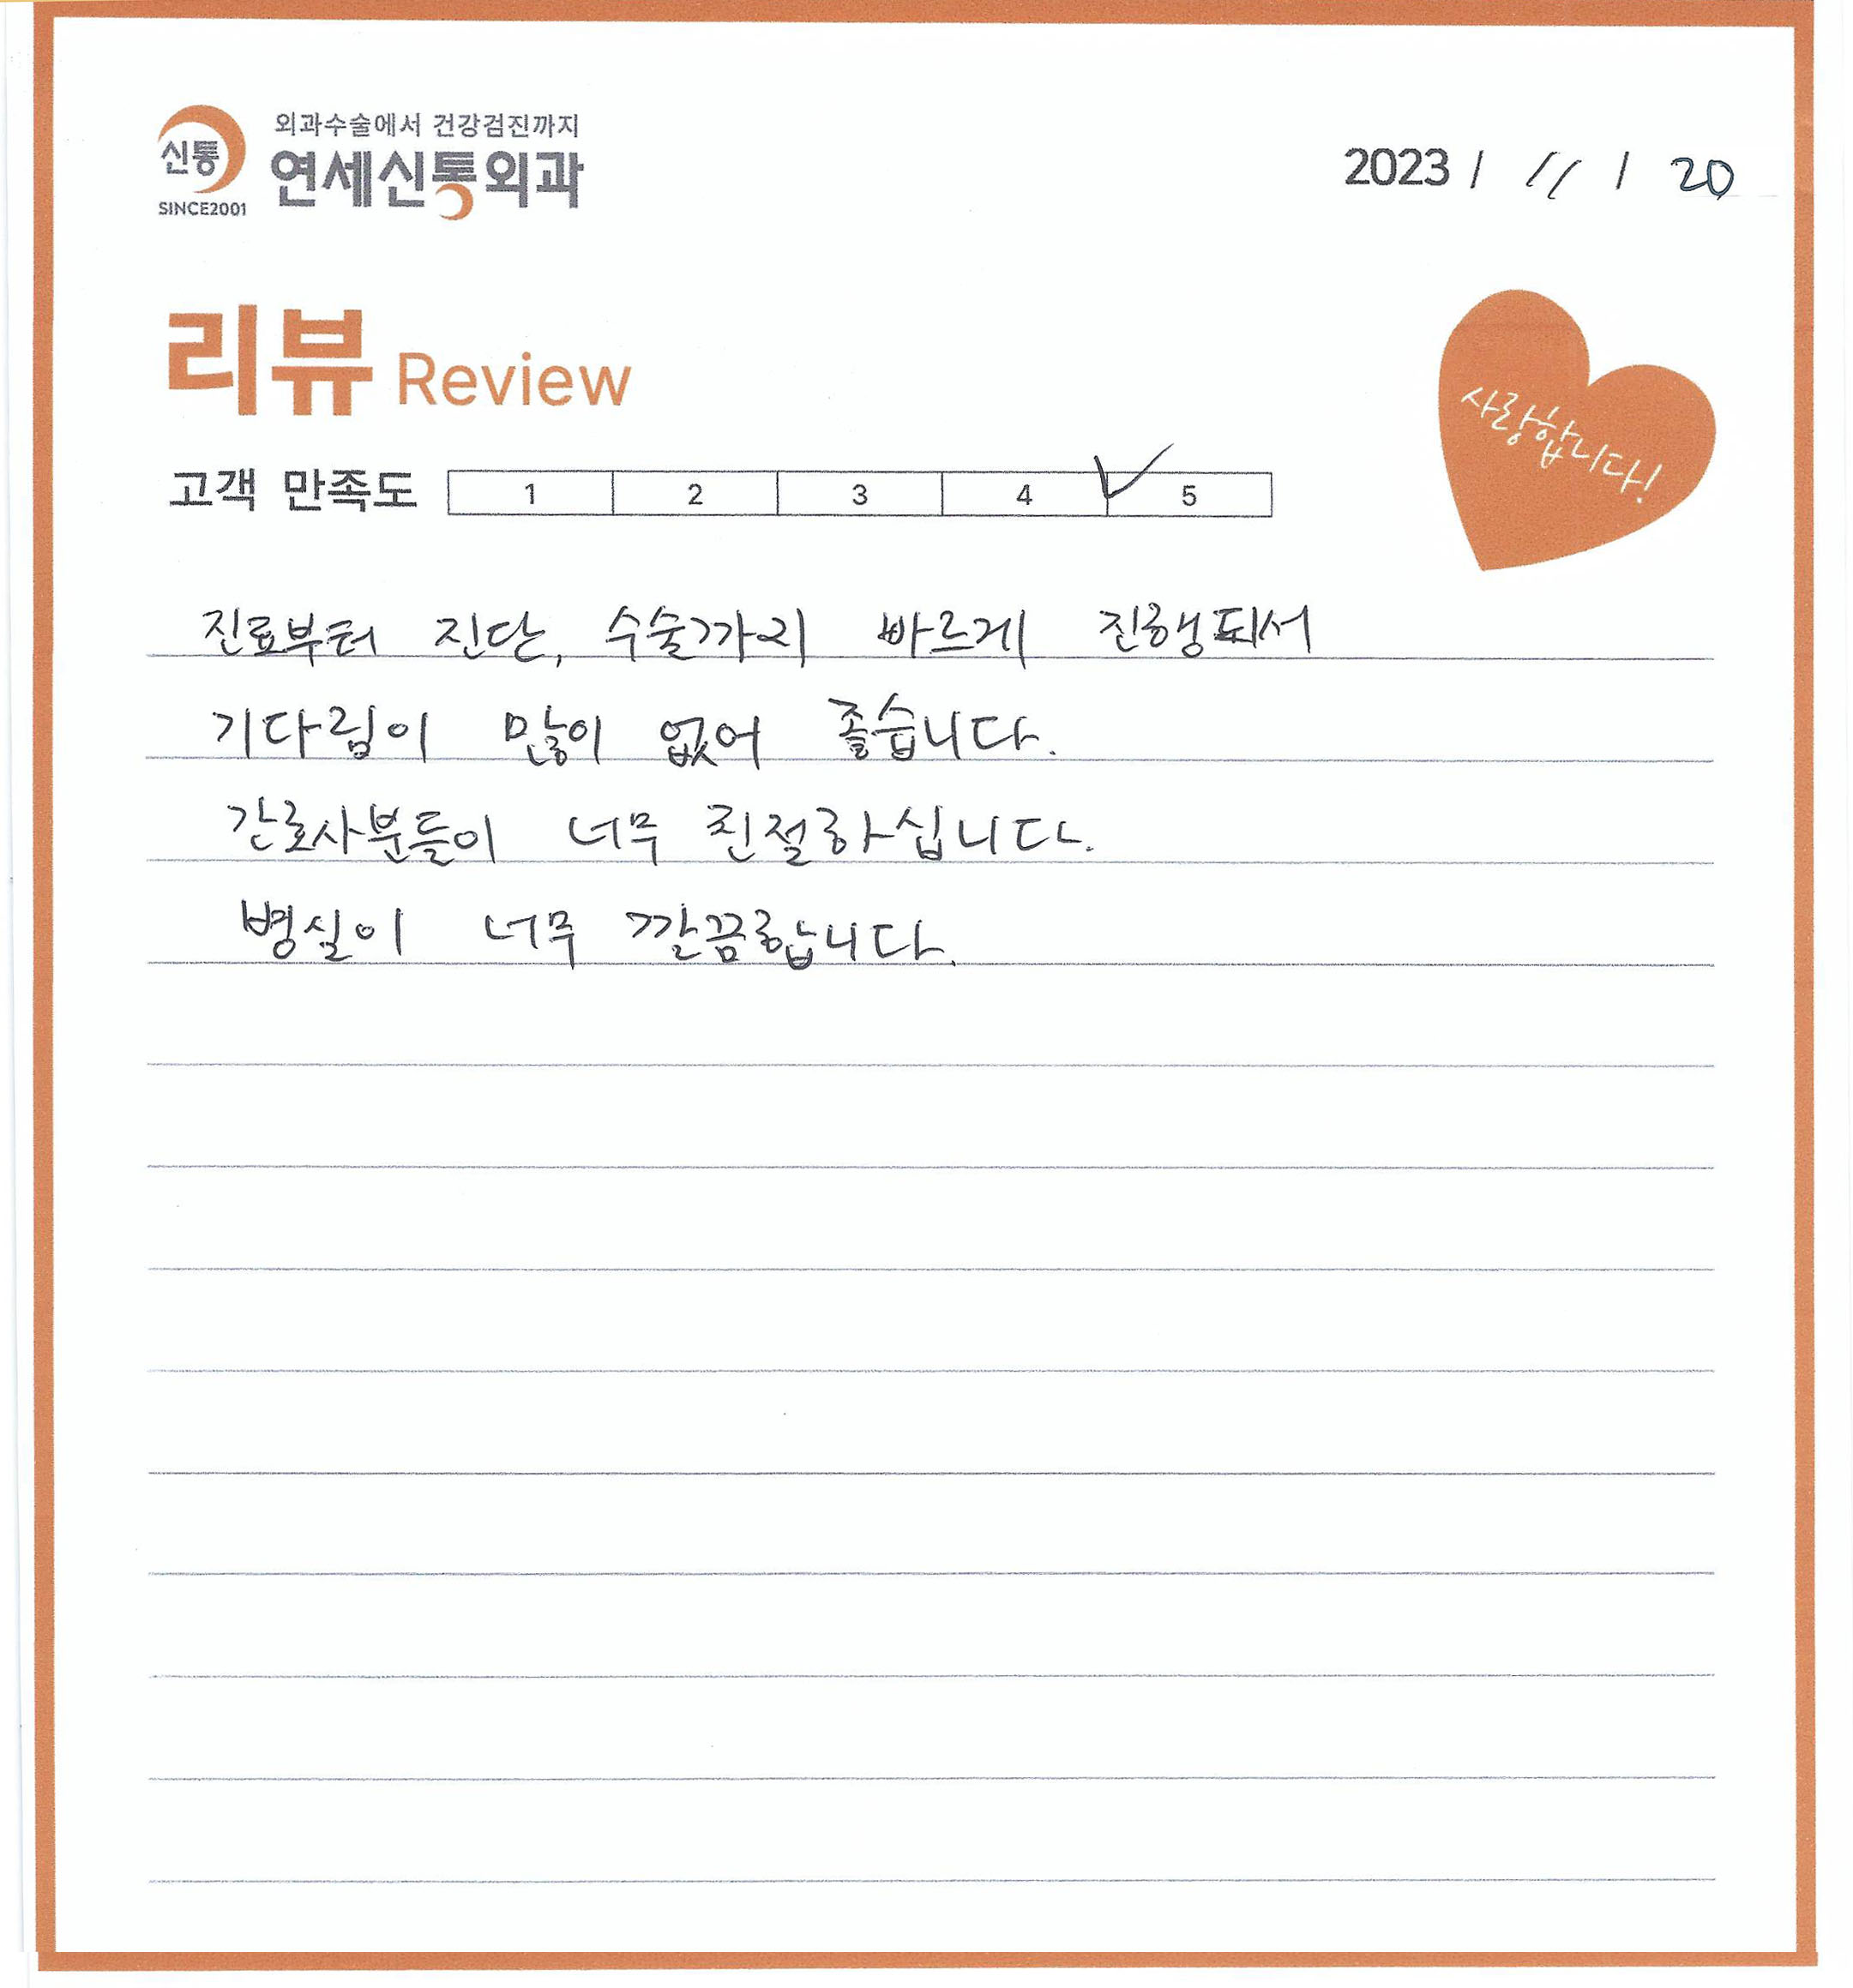 외과수술에서 건강검진까지
신통 연세신통외과
SINCE2001
2023 / 11 / 20
리뷰 Review
사랑합니다!
고객 만족도 1 2 3 4 5
진료부터 진단, 수술까지 빠르게 진행되서
기다림이 많이 없어 좋습니다.
간호사분들이 너무 친절하십니다.
병실이 너무 깔끔합니다.